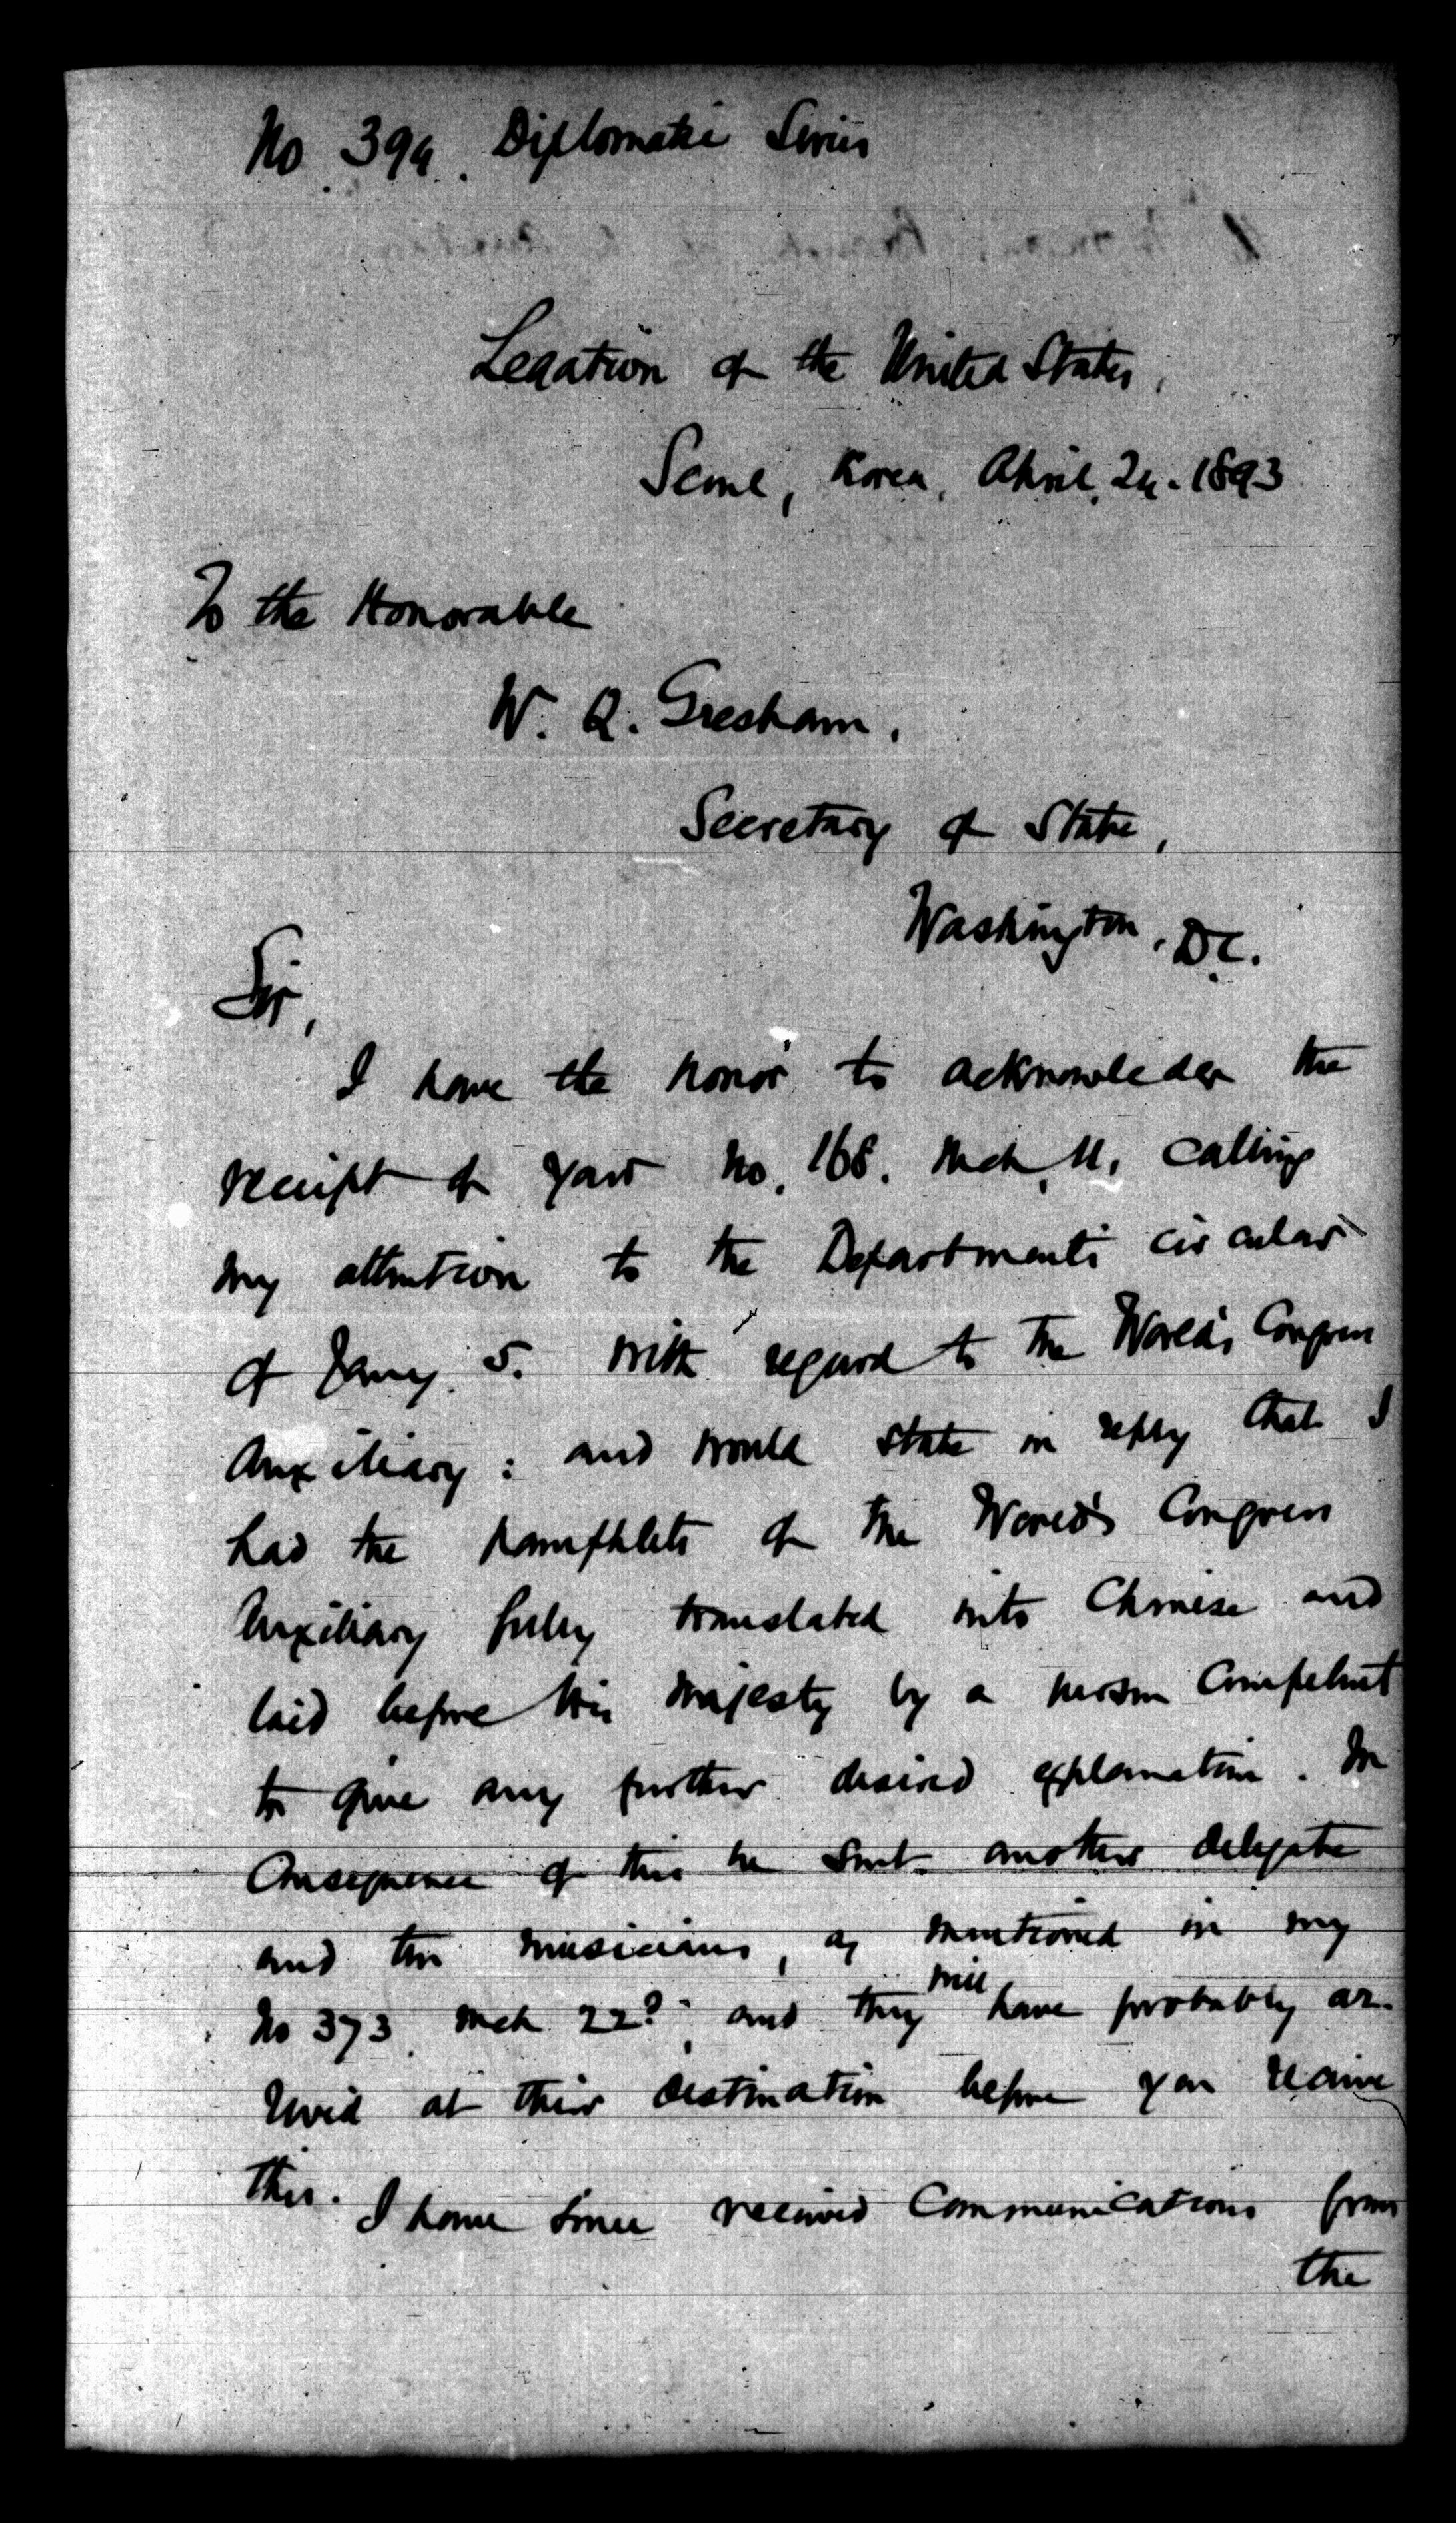 No 394. Diplomatic Series
Legation of the United States,
Seoul, Korea, April, 24. 1893
To the Honorable
W. Q. Gresham,
Secretary of State,
Washington, D.C.
Sir,
I have the honor to acknowledge the
receipt of your No. 168. Mch, 11, calling
my attention to the Departments circular
of Jany. 5. with regard to the World's Congress
Auxiliary: and would state in reply that I
had the pamphlets of the World's Congress
Auxiliary fully translated into Chinese and
laid before His Majesty by a person competent
to give any further desired explanation. In
consequence of this he sent another delegate
and ten musicians, as mentioned in my
No 373 Mch 22?; and they will have probably ar-
rived at their destination before you receive
this.
I have since received communications from
the